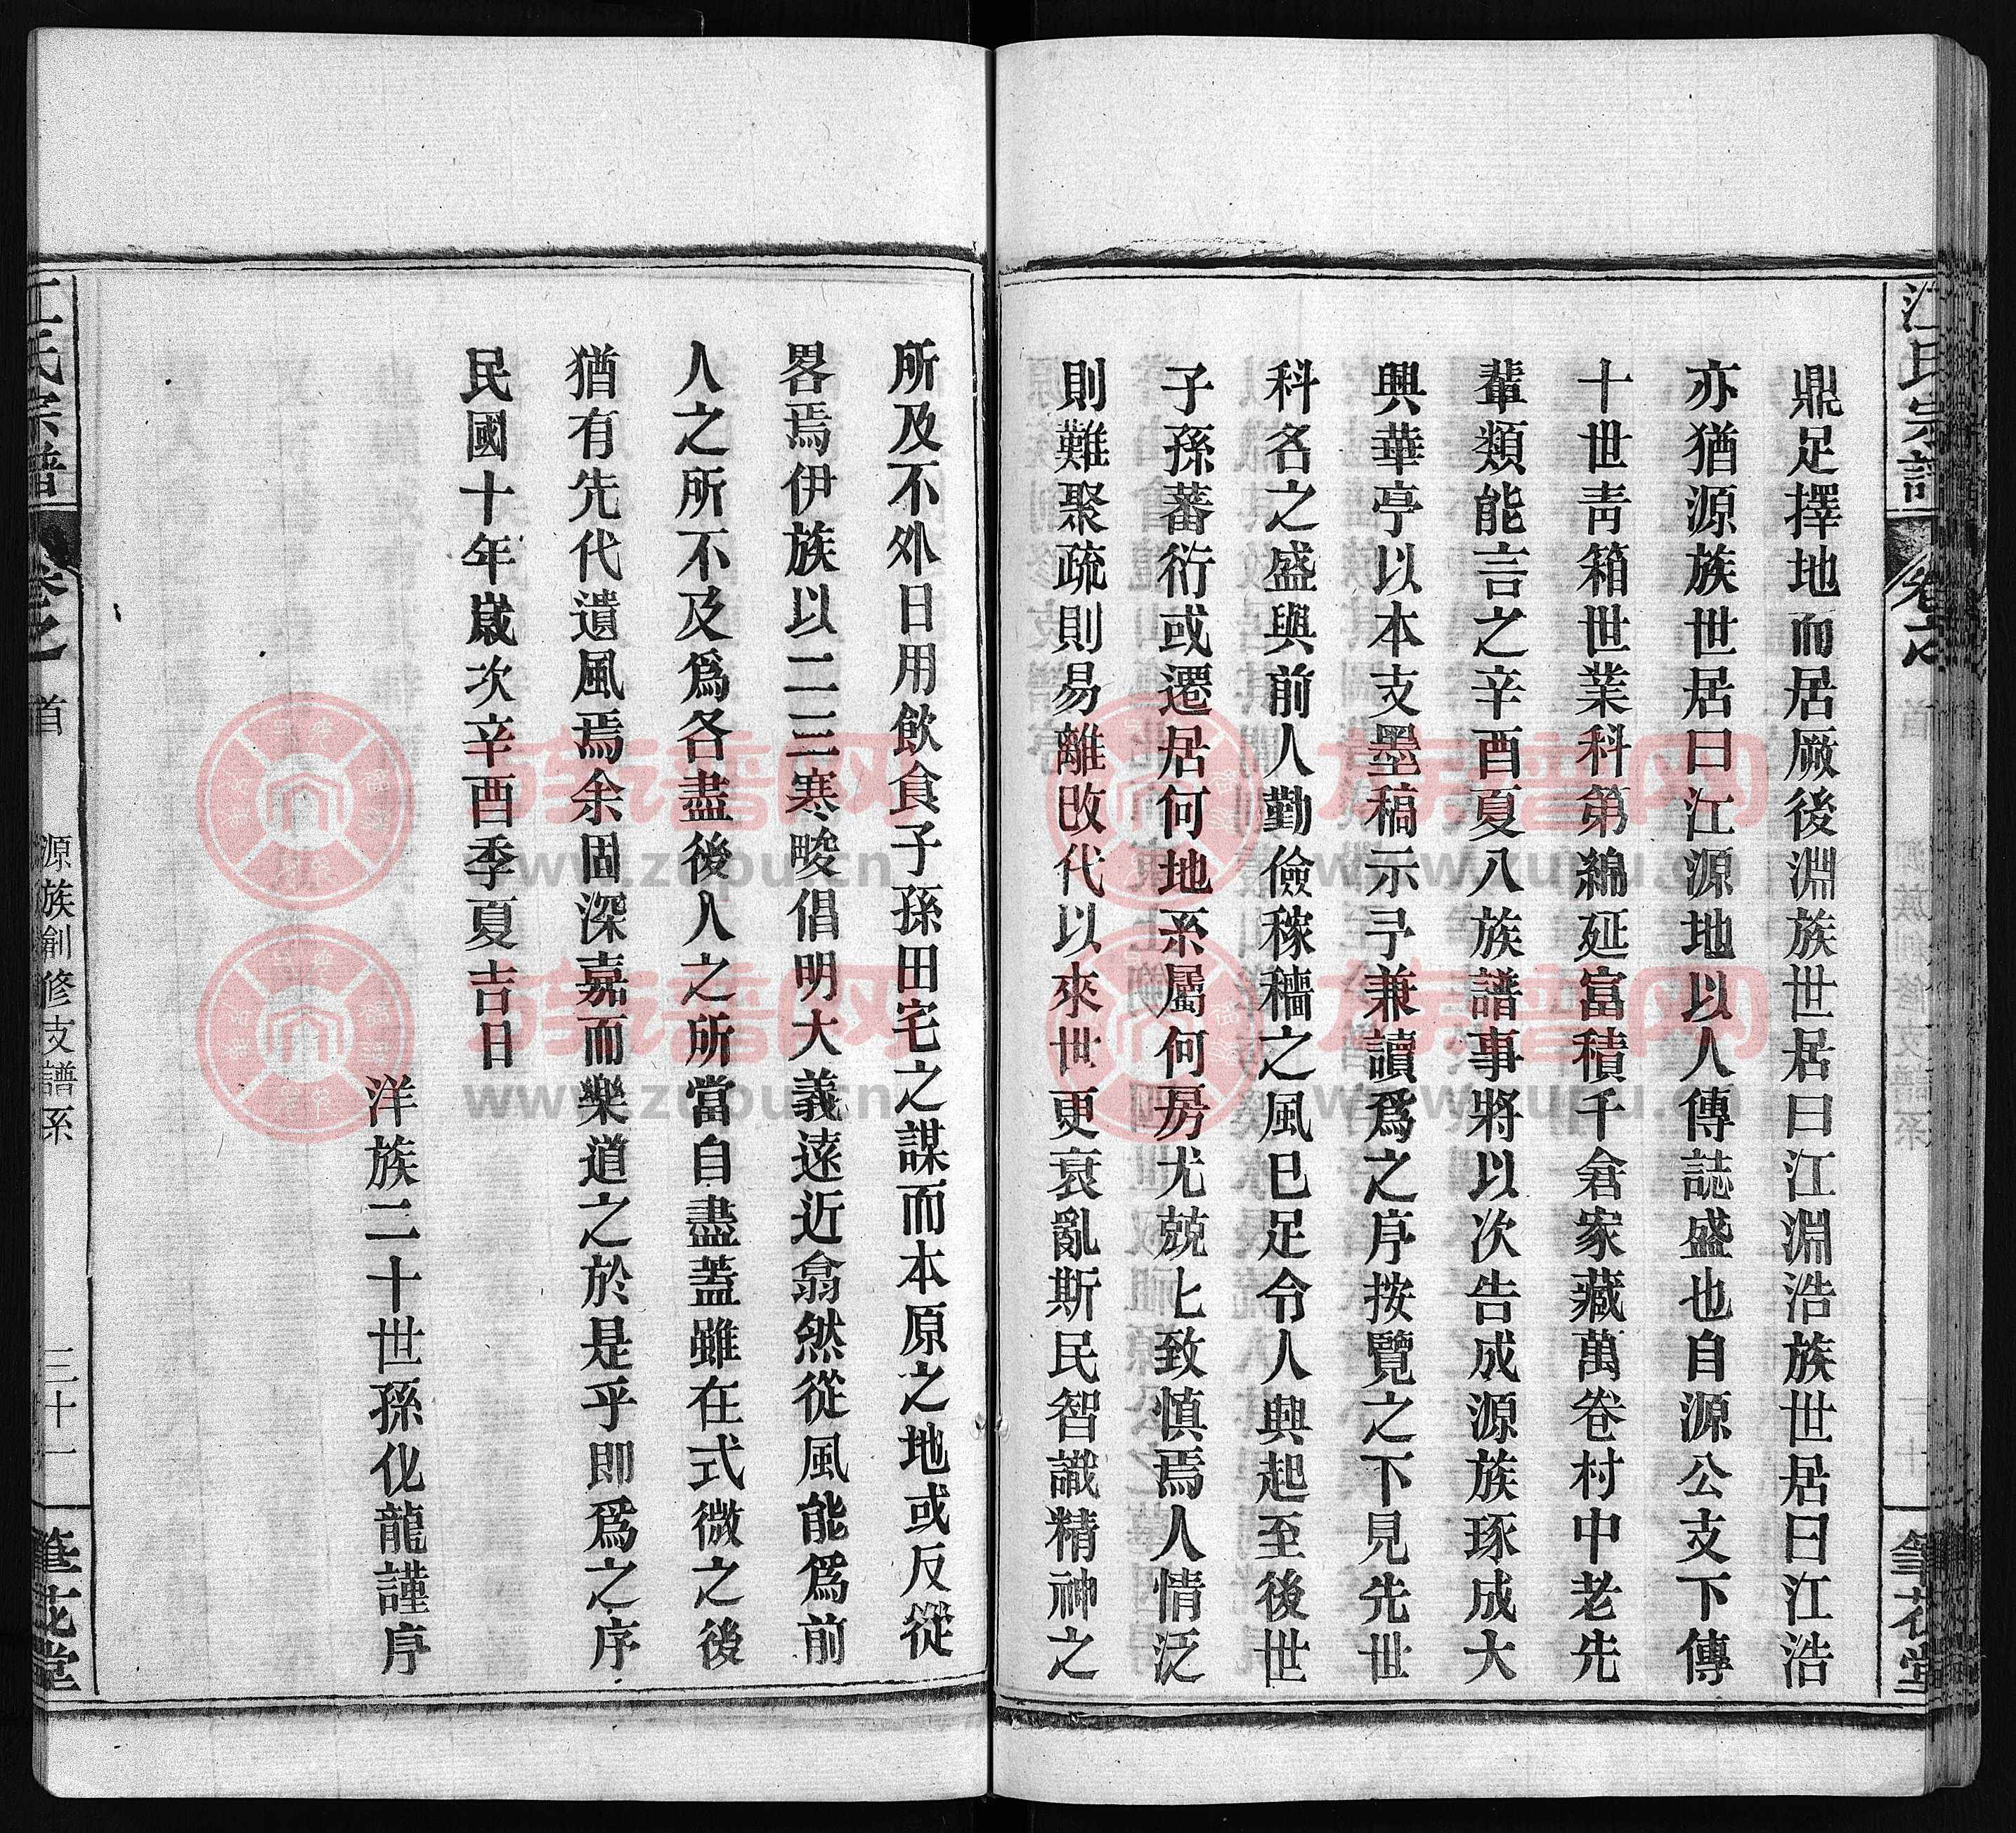 江氏宗譜
卷之
首
筆花堂
鼎足擇地而居厥後淵族世居曰江淵浩族世居曰江浩
亦猶源族世居曰江源地以人傳誌盛也自源公支下傳
十世青箱世業科第綿延富積千倉家藏萬卷村中老先
輩類能言之辛酉夏八族譜事將以次告成源族琢成大
興華亭以本支墨稿示予兼讀爲之序按覽之下見先世
科名之盛與前人勤儉稼穡之風已足令人興起至後世
子孫蕃衍或遷居何地系屬何房尤兢匕致慎焉人情泛
則難聚疏則易離敃代以來世更衰亂斯民智識精神之
所及不外日用飲食子孫田宅之謀而本原之地或反從
畧焉伊族以二三寒畯倡明大義遠近翕然從風能爲前
人之所不及爲各盡後人之所當自盡蓋雖在式微之後
猶有先代遺風焉余固深嘉而樂道之於是乎即爲之序
民國十年歲次辛酉季夏吉日
洋族二十世孫化龍謹序
江氏宗譜
卷之
首
源族創修支譜系
三十一
筆花堂
族譜网
www.zupu.cn
族譜网
www.zupu.cn
族譜网
www.zupu.cn
族譜网
www.zupu.cn